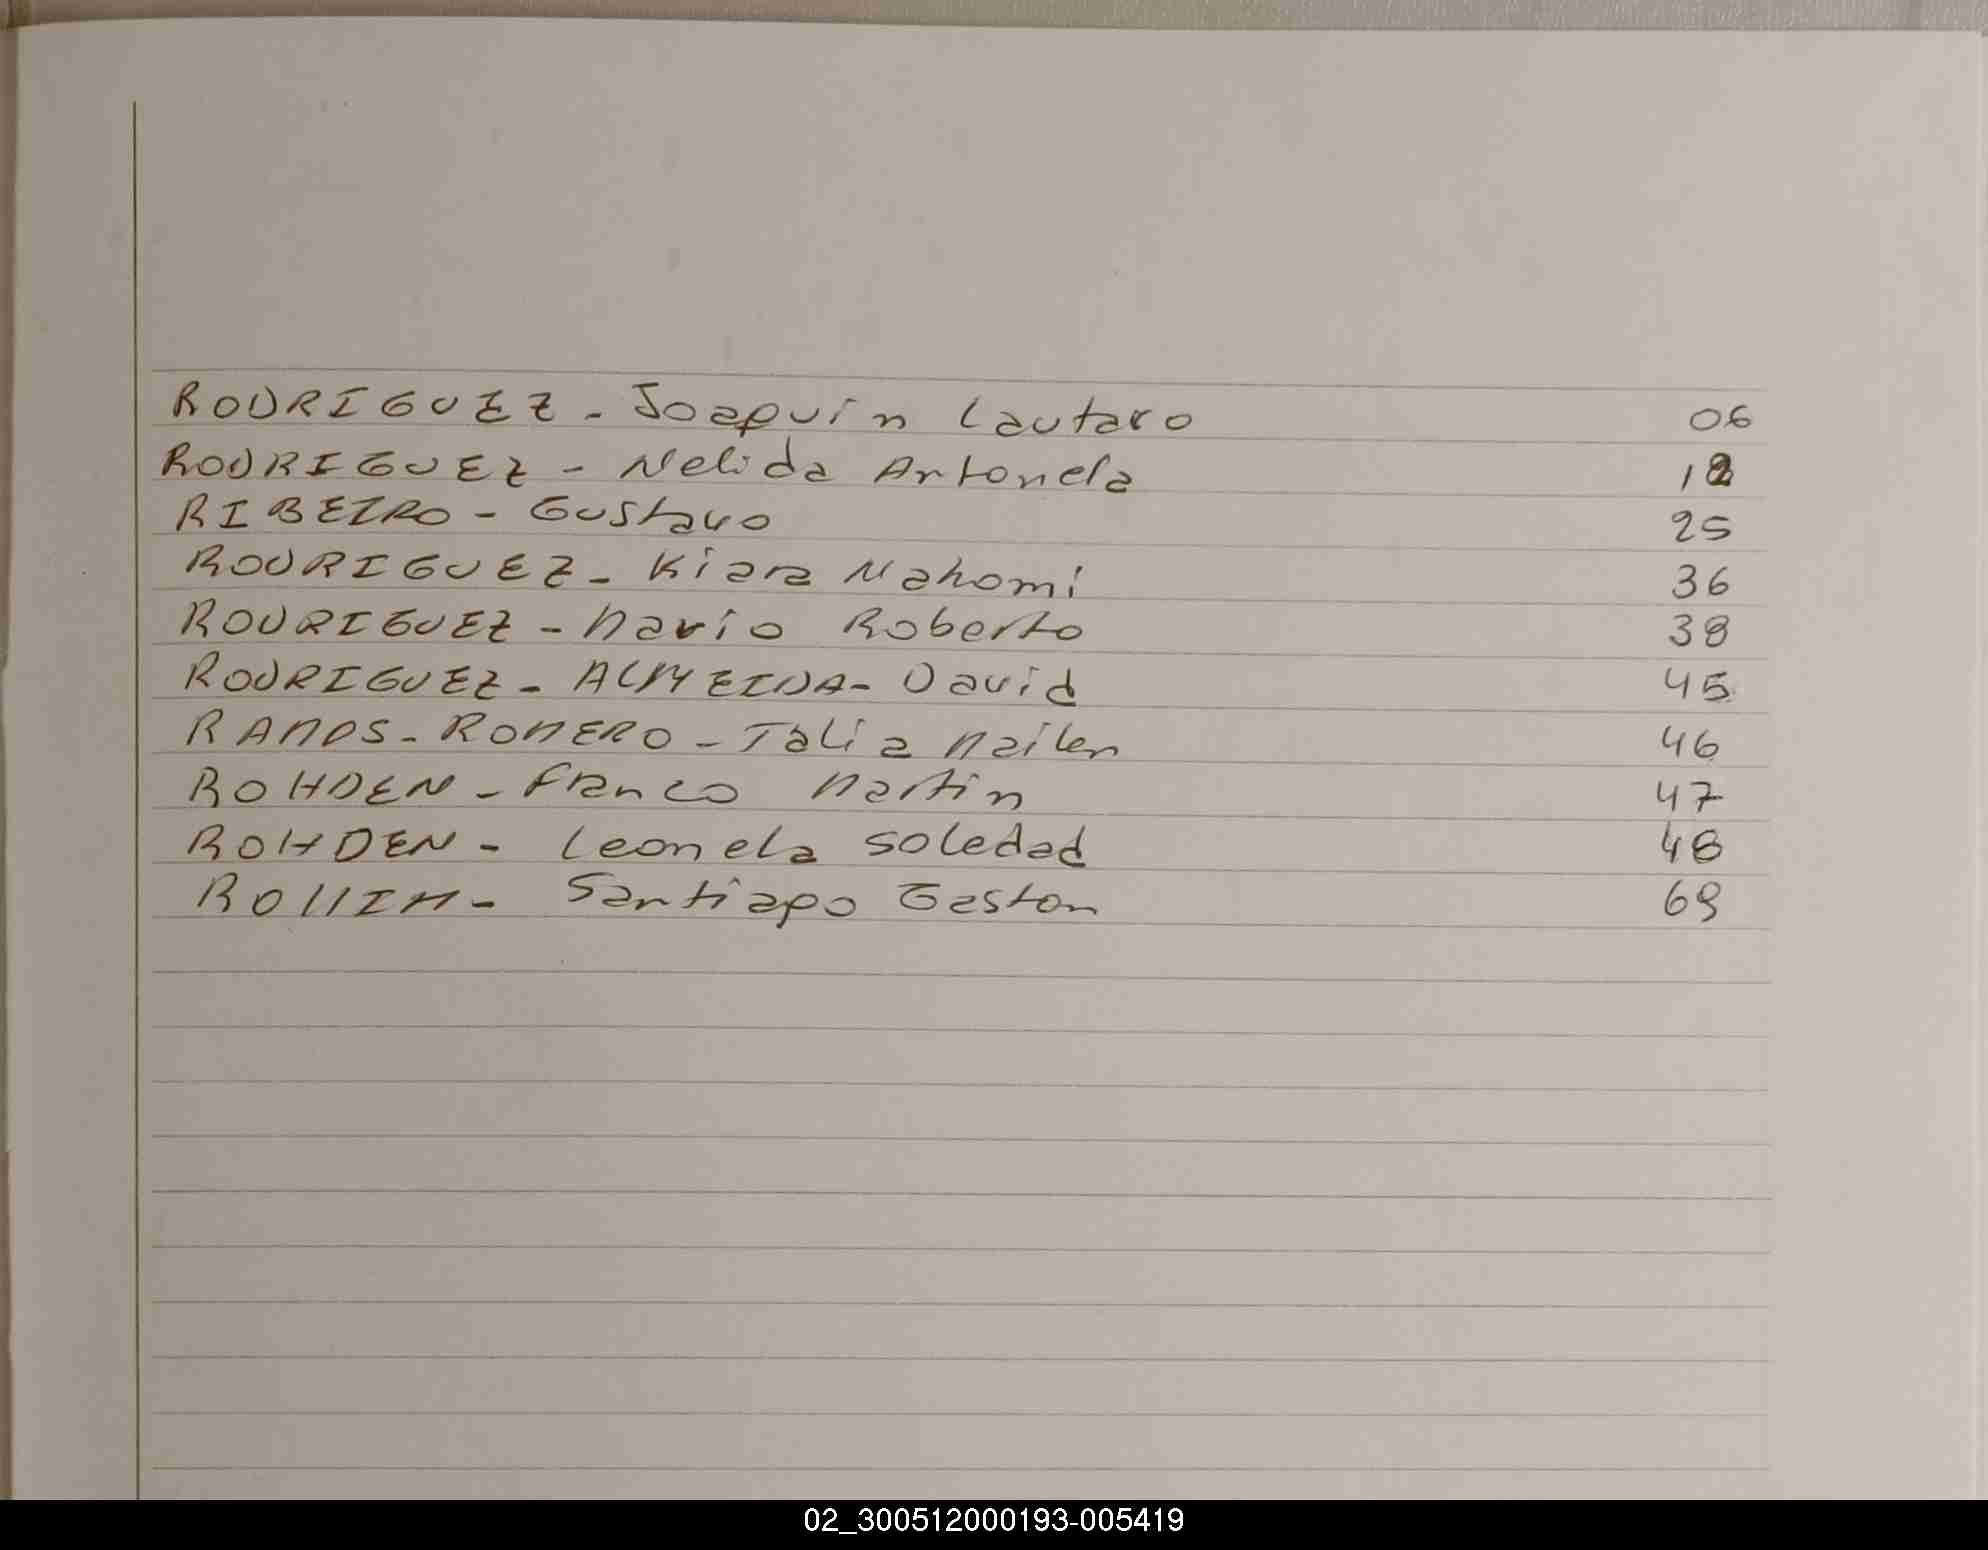 RODRIGUEZ - Joaquin Lautaro 06
RODRIGUEZ - Nelida Antonela 12
RIBEIRO - Gustavo 25
RODRIGUEZ - Kiara Nahomi 36
RODRIGUEZ - Mario Roberto 38
RODRIGUEZ - ALMEIDA - David 45
RAMOS - ROMERO - Talia Mailen 46
ROHDEN - Franco Martin 47
ROHDEN - Leonela Soledad 48
Santiago Gaston 69
02_300512000193-005419